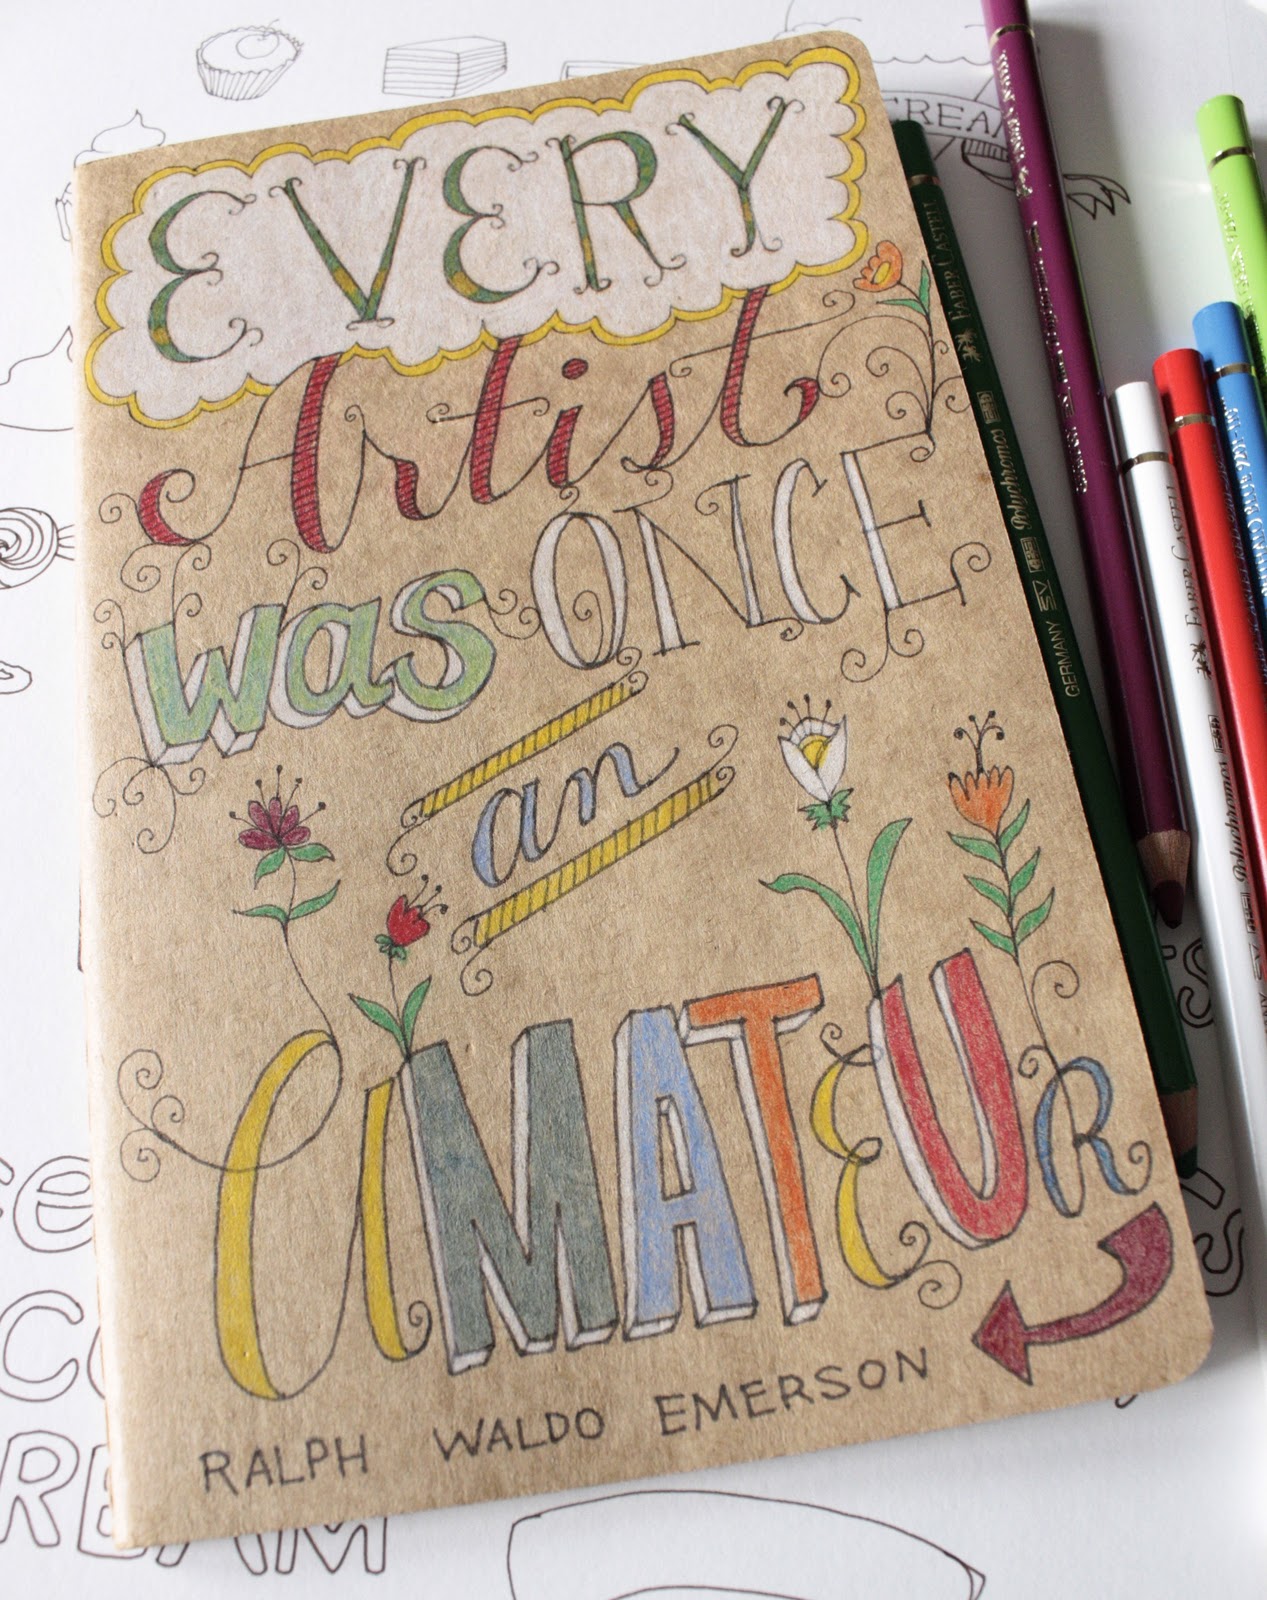 EVERY
Artist
was ONCE
an
aMATEUR
RALPH WALDO EMERSON
CREAM
FABER CASTELL
Polychromos
GERMANY
FABER CASTELL
Polychromos
CREAM